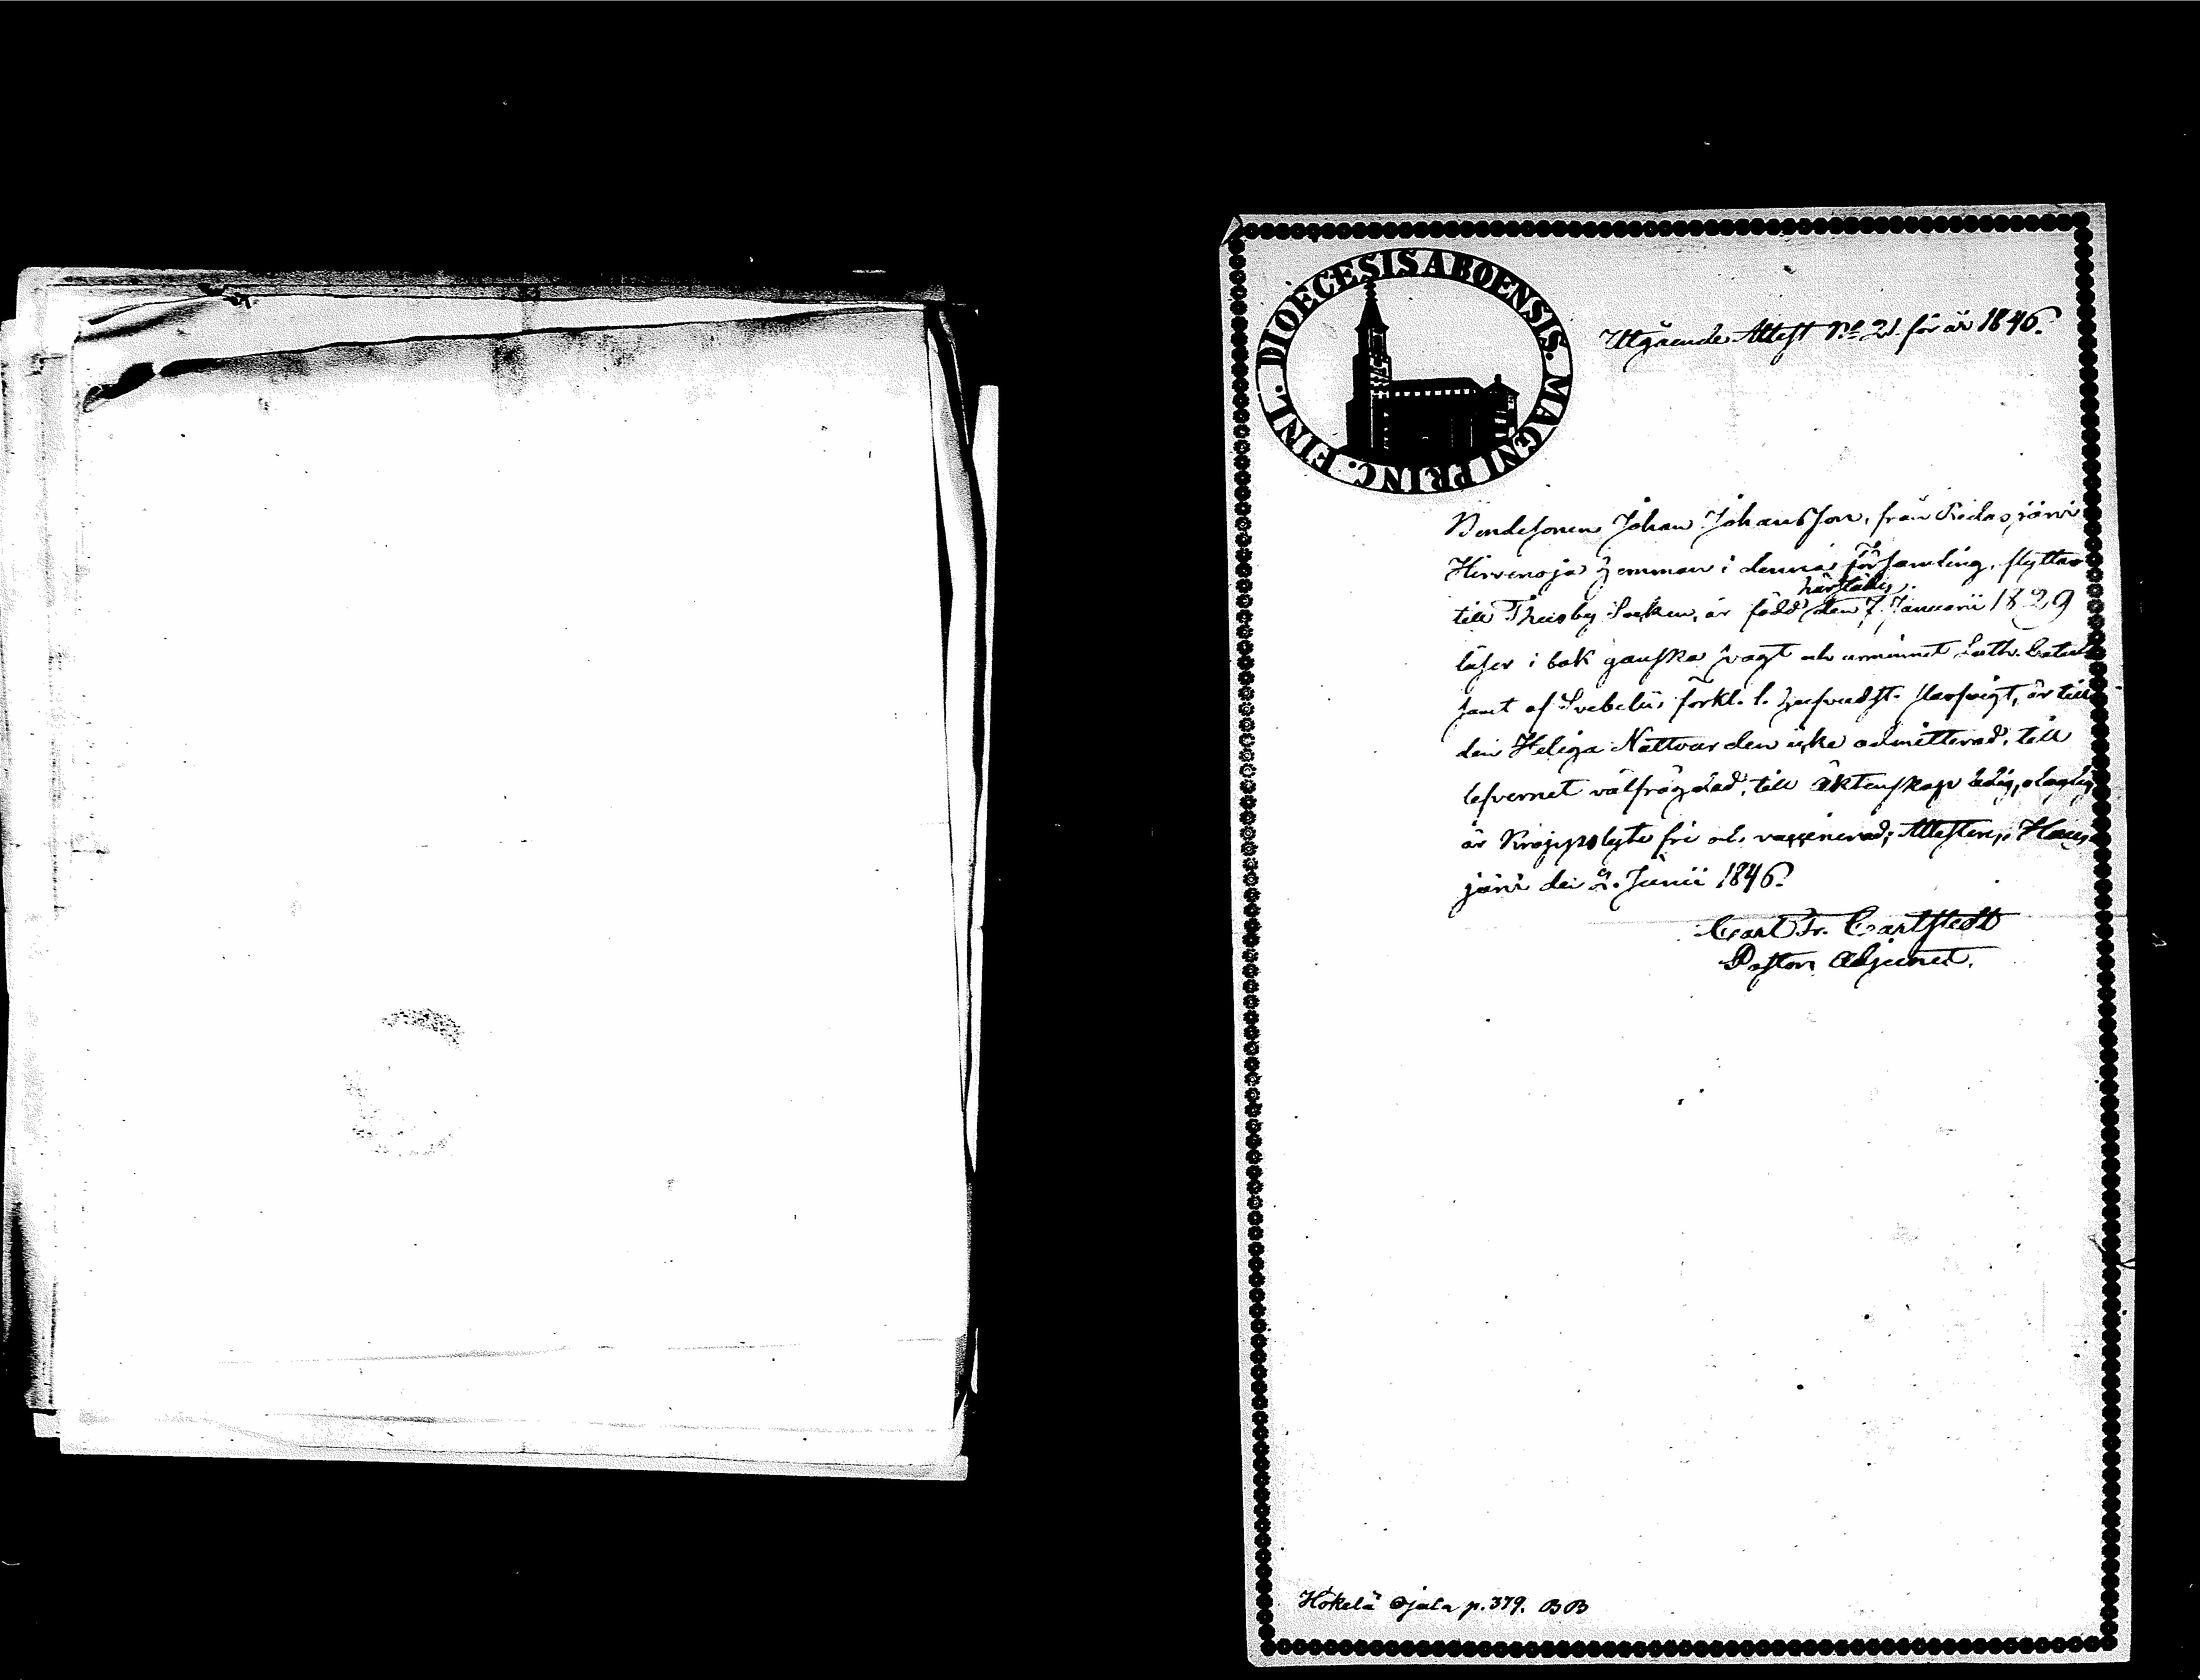 DIOECESIS ABOENSIS. MAGNI PRINC. FINL.
Utgående Attest No 21. för år 1846.
Bondesonen Johan Johansson, från
Hirvenoja hemman i denna Församling, flyttar
härstädes
till Thusby Socken, är född den 7. Januarii 1829
läser i bok ganska svagt och urminnet Luth. Catech.
samt af Svebelii förkl. är till
den Heliga Nattvarden icke admitterad, till
lefvernet välfrägdad, till äktenskap ledig,
är Kroppslyte fri och vaccinerad; Attesten,
järvi den 2. Junii 1846.
Carl Fr. Cartstedt
Pastors Adjunct.
Hokelä Ojala p. 379. BB